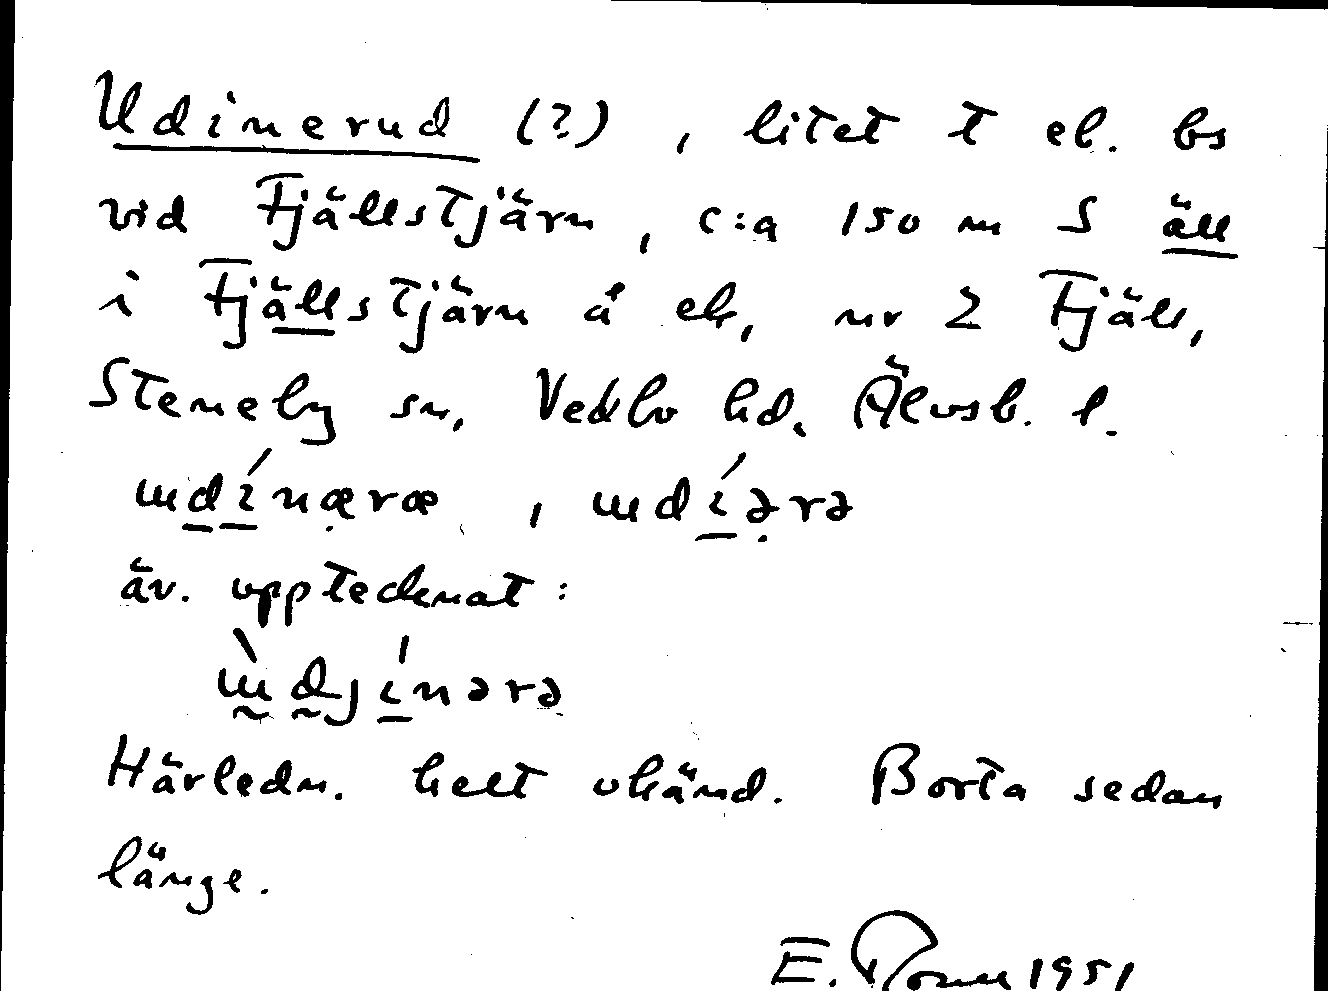 Udinerud (?), litet t el. bs
vid Fjällstjärn, c:a 150 m S äll
i Fjällstjärn å ek, nr 2 Fjäll,
Steneby sn, Vedbo hd. Älvsb. l.
ɯdínæræ, ɯdíərə
äv. upptecknat:
ɯ̀djínərə
Härledn. helt okänd. Borta sedan
länge.
E. 1951